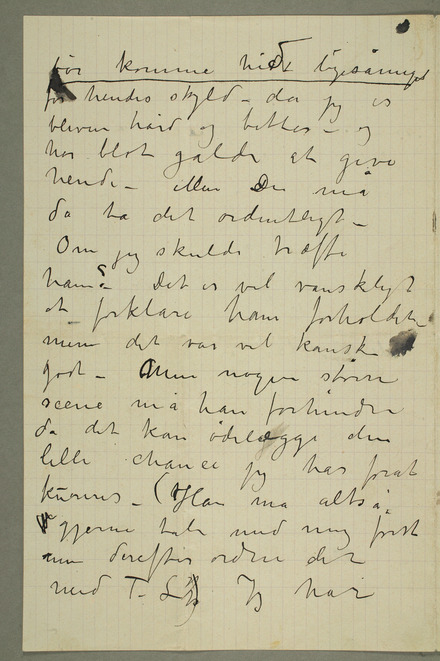 bør komme hid ligesåmeget
for hendes skyld – da jeg er
bleven hård og bitter – og
har blot galde at give
hende – men De må
da ta det ordentligt –
Om jeg skulde træffe
ham? Det er vel vanskeligt
at forklare ham forholdet
men det var vel kanske
godt – Men nogen større
scene må han forhindre
da det kan ødelægge den
lille chance jeg har for at
kureres – (Han må altså
gjerne tale med mig først
men derefter ordne det
med T – L) Jeg har